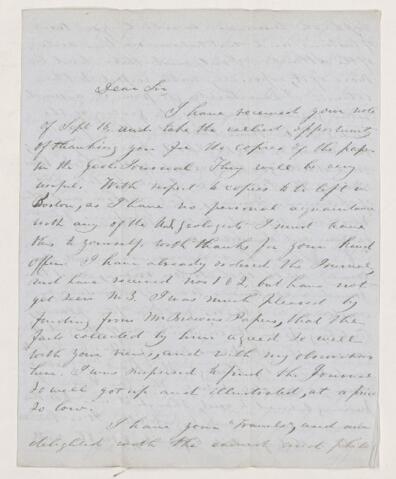 Dear Sir
I have received your note
of Sept 18, and take the earliest opportunity
of thanking you for the copies of the paper
in the Geol Journal. They will be very
useful. With respect to copies to be left in
Boston, as I have no personal acquaintance
with any of the U.S. geologists I must leave
this to yourself with thanks for your kind
offer. I have already ordered the Journal,
and have received nos 1 & 2, but have not
yet seen No 3. I was much pleased by
finding from Mr Brown's Papers, that the
facts collected by him agreed so well
with your views, and with my observations
here. I was surprised to find the Journal
so well got up and illustrated, at a price
so low.
I have your "Travels", and am
delighted with the and